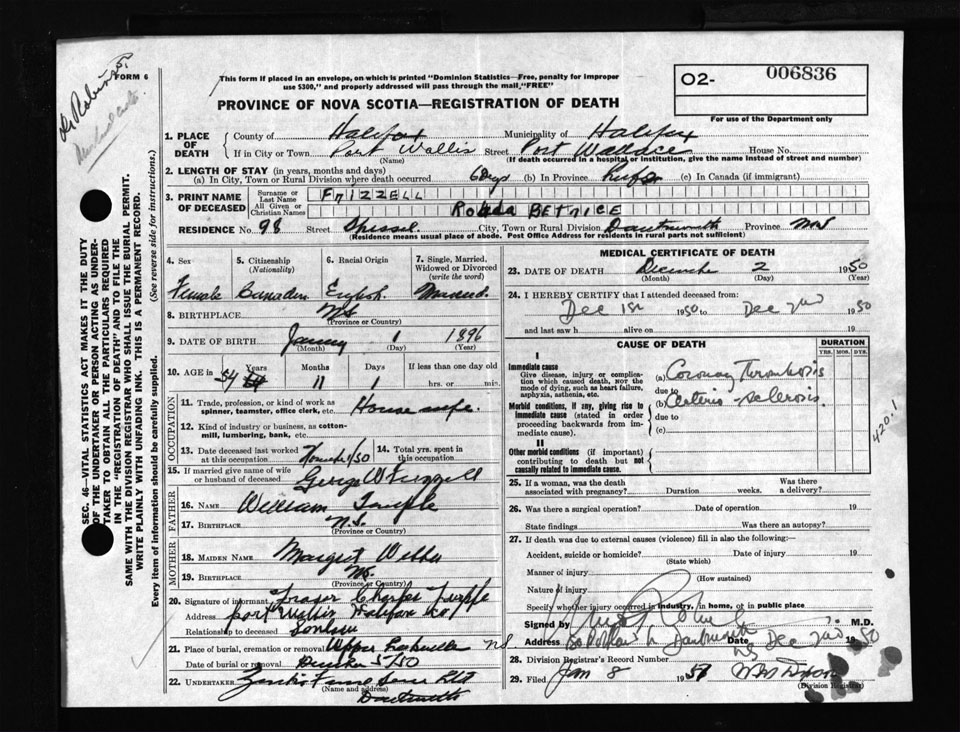 FORM 6
This form if placed in an envelope, on which is printed "Dominion Statistics—Free, penalty for improper
use $300," and properly addressed will pass through the mail "FREE"
PROVINCE OF NOVA SCOTIA—REGISTRATION OF DEATH
O2- 006836
For use of the Department only
SEC. 46—VITAL STATISTICS ACT MAKES IT THE DUTY
OF THE UNDERTAKER OR PERSON ACTING AS UNDER-
TAKER TO OBTAIN ALL THE PARTICULARS REQUIRED
IN THE "REGISTRATION OF DEATH" AND TO FILE THE
SAME WITH THE DIVISION REGISTRAR WHO SHALL ISSUE THE BURIAL PERMIT.
WRITE PLAINLY WITH UNFADING INK. THIS IS A PERMANENT RECORD.
Every item of information should be carefully supplied. (See reverse side for instructions.)
1. PLACE OF DEATH
County of Halifax Municipality of Halifax
If in City or Town Port Wallis Street Port Wallace House No.
(Name) (If death occurred in a hospital or institution, give the name instead of street and number)
2. LENGTH OF STAY (in years, months and days)
(a) In City, Town or Rural Division where death occurred 6 Days (b) In Province (c) In Canada (if immigrant)
3. PRINT NAME OF DECEASED
Surname or Last Name FRIZZELL
All Given or Christian Names BETRICE
RESIDENCE No. 98 Street Town, City or Rural Division Dartmouth Province NS
(Residence means usual place of abode. Post Office Address for residents in rural parts not sufficient)
4. Sex 5. Citizenship (Nationality) 6. Racial Origin 7. Single, Married, Widowed or Divorced (write the word)
Female Canadian English Married
8. BIRTHPLACE NS
(Province or Country)
9. DATE OF BIRTH January 1 1896
(Month) (Day) (Year)
10. AGE in Years Months Days If less than one day old
54 11 1 hrs. or min.
OCCUPATION
11. Trade, profession or kind of work as spinner, teamster, office clerk, etc. House wife.
12. Kind of industry or business, as cotton-mill, lumbering, bank, etc.
13. Date deceased last worked at this occupation /50 14. Total yrs. spent in this occupation
15. If married give name of wife or husband of deceased George W Frizzell
FATHER
16. NAME William
17. BIRTHPLACE N.S.
(Province or Country)
MOTHER
18. MAIDEN NAME Margret
19. BIRTHPLACE NS
(Province or Country)
20. Signature of informant Fraser Charles
Address Port Wallis Halifax Co
Relationship to deceased
21. Place of burial, cremation or removal Upper N.S.
Date of burial or removal December 5/50
22. UNDERTAKER
(Name and address)
Dartmouth
MEDICAL CERTIFICATE OF DEATH
23. DATE OF DEATH December 2 1950
(Month) (Day) (Year)
24. I HEREBY CERTIFY that I attended deceased from:
Dec 1st 1950 to Dec 2nd 1950
and last saw h alive on 19
CAUSE OF DEATH DURATION
YRS. MOS. DYS.
I
Immediate cause
Give disease, injury or complication which caused death, NOT the mode of dying, such as heart failure, asphyxia, asthenia, etc.
(a) Coronary Thrombosis
due to
Morbid conditions, if any, giving rise to immediate cause (stated in order proceeding backwards from immediate cause).
(b) Arterio-sclerosis.
due to
(c)
420.1
II
Other morbid conditions (if important) contributing to death but not causally related to immediate cause.
25. If a woman, was the death associated with pregnancy? Duration weeks. Was there a delivery?
26. Was there a surgical operation? Date of operation 19
State findings Was there an autopsy?
27. If death was due to external causes (violence) fill in also the following:—
Accident, suicide or homicide? Date of injury 19
(State which)
Manner of injury
(How sustained)
Nature of injury
Specify whether injury occurred in industry, in home, or in public place
Signed by M.D.
Address Dartmouth NS Date Dec 2nd 1950
28. Division Registrar's Record Number
29. Filed Jan 8 1951
(Division Registrar)